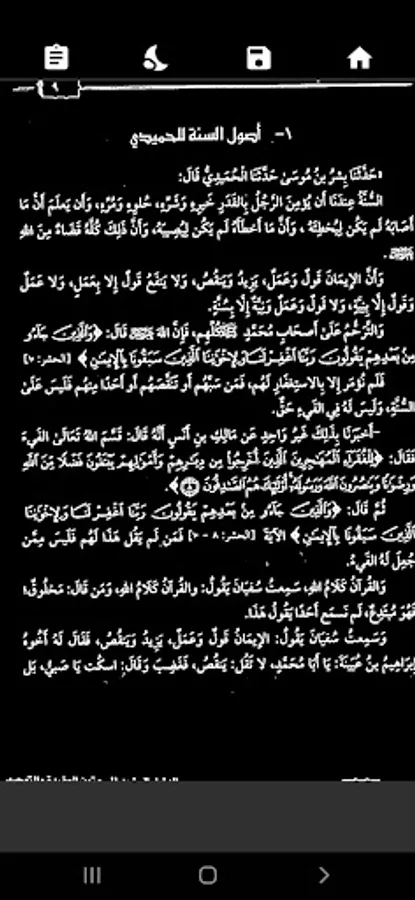 ٩
١- أصول السنة للحميدي
«حَدَّثَنَا بِشْرُ بنُ مُوسَىٰ حَدَّثَنَا الْحُمَيْدِيُّ قَالَ:
السُّنَّةُ عِندَنَا أَن يُؤمِنَ الرَّجُلُ بِالقَدَرِ خَيرِهِ وَشَرِّهِ، حُلوِهِ وَمُرِّهِ، وَأَن يَعلَمَ أَنَّ مَا
أَصَابَهُ لَم يَكُن لِيُخطِئَهُ، وَأَنَّ مَا أَخطَأَهُ لَم يَكُن لِيُصِيبَهُ، وَأَنَّ ذَلِكَ كُلَّهُ قَضَاءٌ مِنَ اللهِ
وَأَنَّ الإِيمَانَ قَولٌ وَعَمَلٌ، يَزِيدُ وَيَنقُصُ، وَلا يَنفَعُ قَولٌ إِلا بِعَمَلٍ، وَلا عَمَلٌ
وَقَولٌ إِلَّا بِنِيَّةٍ، وَلا قَولٌ وَعَمَلٌ وَنِيَّةٌ إِلَّا بِسُنَّةٍ.
وَالتَّرَحُّمُ عَلَىٰ أَصحَابِ مُحَمَّدٍ ﷺ كُلِّهِم، فَإِنَّ اللهَ ﷻ قَالَ: ﴿وَالَّذِينَ جَاءُو
مِنْ بَعْدِهِمْ يَقُولُونَ رَبَّنَا اغْفِرْ لَنَا وَلِإِخْوَانِنَا الَّذِينَ سَبَقُونَا بِالْإِيمَانِ﴾ [الحشر: ١٠]
فَلَم نُؤمَر إِلا بِالاستِغفَارِ لَهُم، فَمَن سَبَّهُم أَو تَنَقَّصَهُم أَو أَحَدًا مِنهُم فَلَيسَ عَلَىٰ
السُّنَّةِ، وَلَيسَ لَهُ فِي الفَيءِ حَقٌّ.
-أَخبَرَنَا بِذَلِكَ غَيرُ وَاحِدٍ عَن مَالِكِ بنِ أَنَسٍ أَنَّهُ قَالَ: قَسَّمَ اللهُ تَعَالَىٰ الفَيءَ
فَقَالَ: ﴿لِلْفُقَرَاءِ الْمُهَاجِرِينَ الَّذِينَ أُخْرِجُوا مِن دِيَارِهِمْ وَأَمْوَالِهِمْ يَبْتَغُونَ فَضْلًا مِّنَ اللَّهِ
وَرِضْوَانًا وَيَنصُرُونَ اللَّهَ وَرَسُولَهُ أُولَئِكَ هُمُ الصَّادِقُونَ ٨﴾.
ثُمَّ قَالَ: ﴿وَالَّذِينَ جَاءُو مِنْ بَعْدِهِمْ يَقُولُونَ رَبَّنَا اغْفِرْ لَنَا وَلِإِخْوَانِنَا
الَّذِينَ سَبَقُونَا بِالْإِيمَانِ﴾ الآيَةَ [الحشر: ٨-١٠] فَمَن لَم يَقُل هَذَا لَهُم فَلَيسَ مِمَّن
جُعِلَ لَهُ الفَيءُ.
وَالقُرآنُ كَلَامُ اللهِ، سَمِعتُ سُفيَانَ يَقُولُ: والقُرآنُ كَلَامُ اللهِ، وَمَن قَالَ: مَخلُوقٌ؛
فَهُوَ مُبتَدِعٌ، لَم نَسمَع أَحَدًا يَقُولُ هَذَا.
وَسَمِعتُ سُفيَانَ يَقُولُ: الإِيمَانُ قَولٌ وَعَمَلٌ، يَزِيدُ وَيَنقُصُ، فَقَالَ لَهُ أَخُوهُ
إِبرَاهِيمُ بنُ عُيَينَةَ: يَا أَبَا مُحَمَّدٍ، لا تَقُل: يَنقُصُ، فَغَضِبَ وَقَالَ: اسكُت يَا صَبِيُّ، بَل